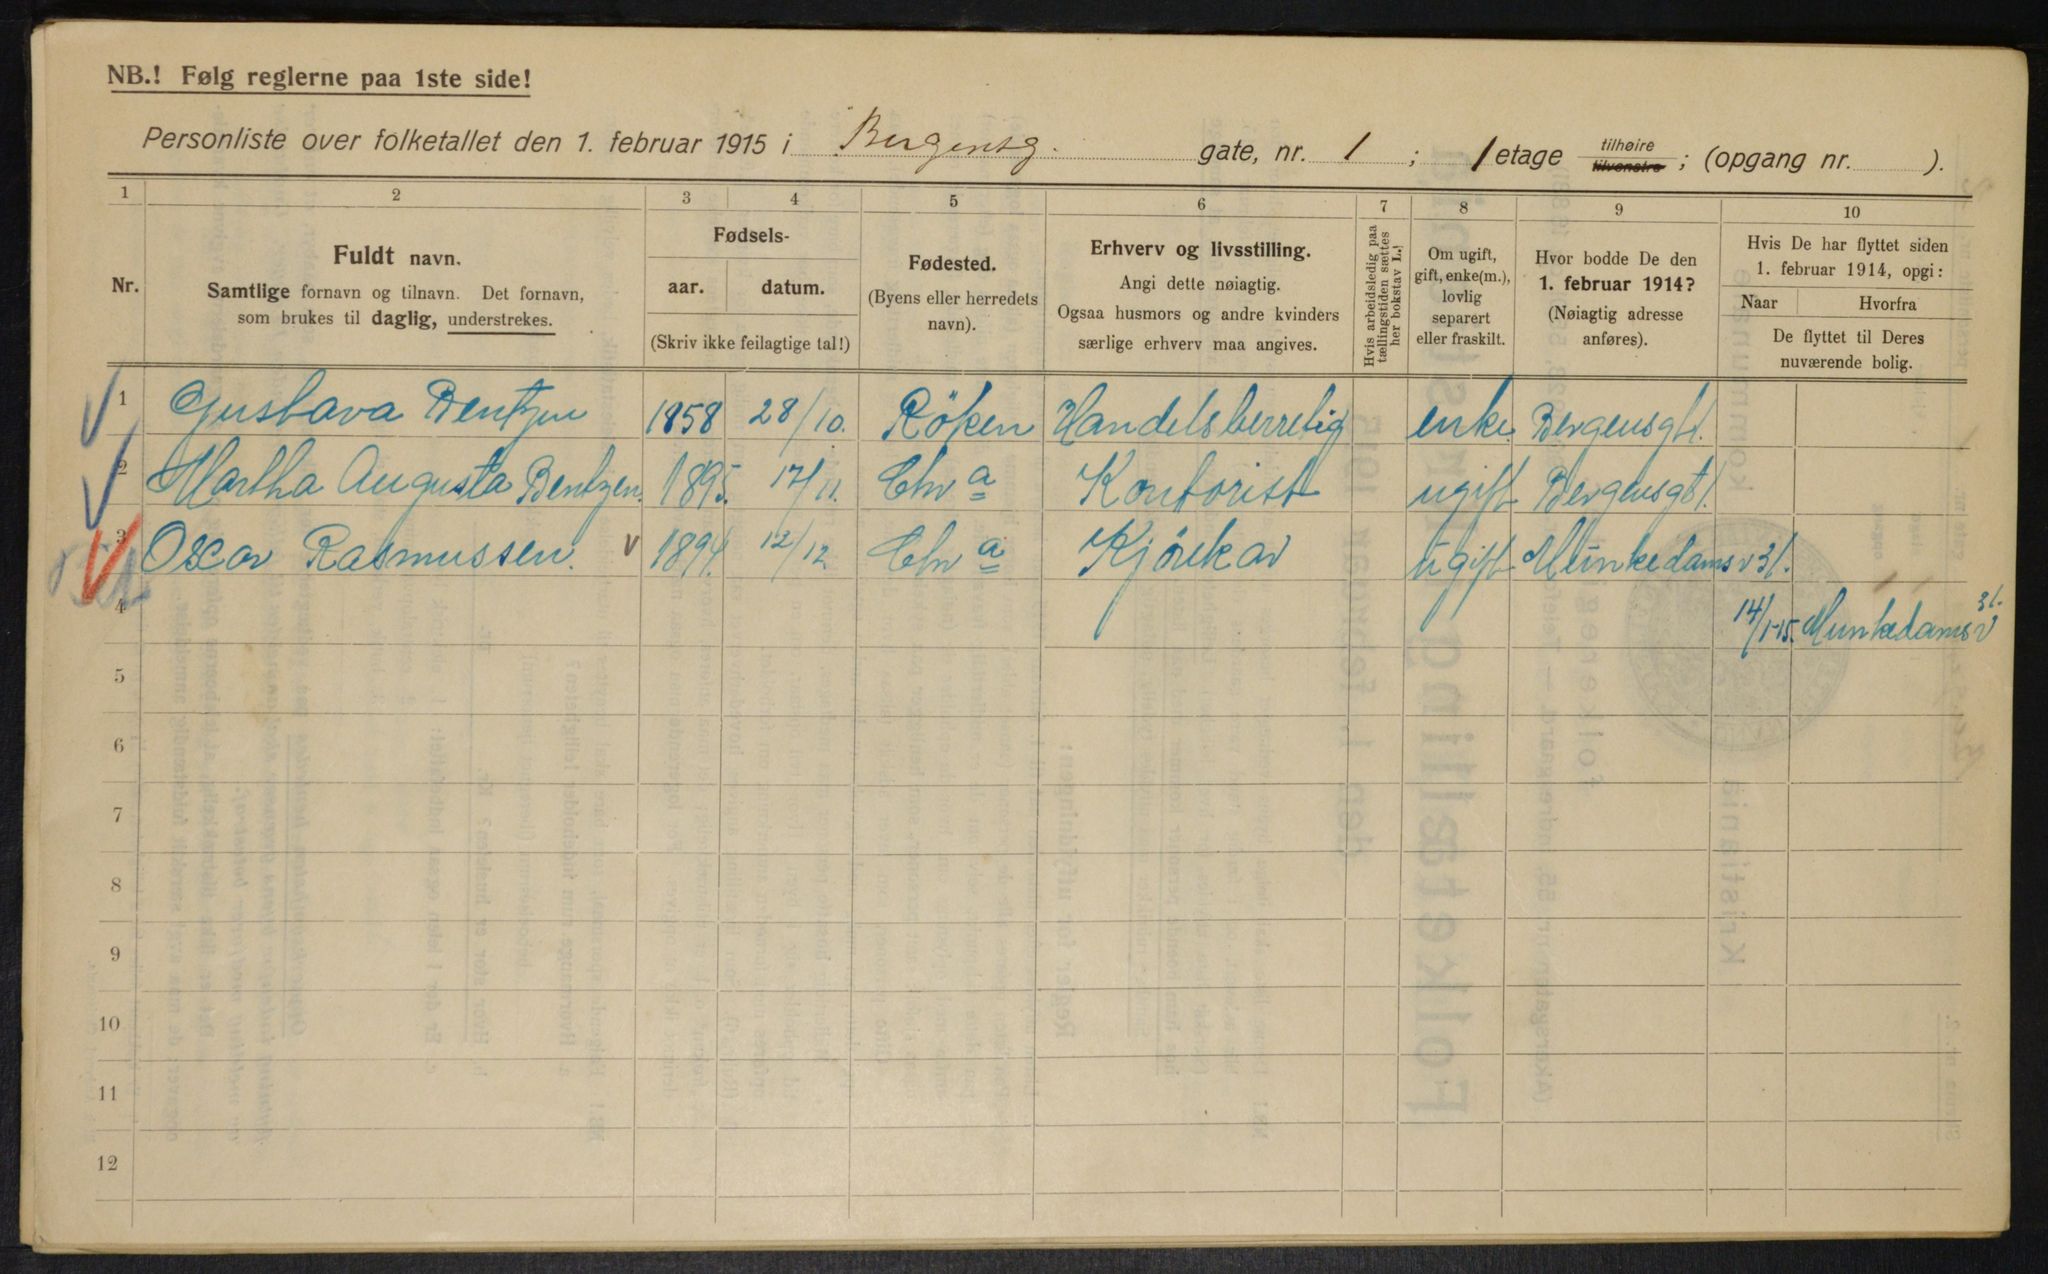 NB.! Følg reglerne paa 1ste side!
Personliste over folketallet den 1. februar 1915 i Bergensg. gate, nr. 1 ; 1 etage tilhøire tilvenstre ; (opgang nr. ).
1 2 3 4 5 6 7 8 9 10
Nr.
Fuldt navn.
Samtlige fornavn og tilnavn. Det fornavn,
som brukes til daglig, understrekes.
Fødsels-
aar. datum.
(Skriv ikke feilagtige tal!)
Fødested.
(Byens eller herredets
navn).
Erhverv og livsstilling.
Angi dette nøiagtig.
Ogsaa husmors og andre kvinders
særlige erhverv maa angives.
Hvis arbeidsledig paa
tællingstiden sættes
her bokstav L.!
Om ugift,
gift, enke(m.),
lovlig
separert
eller fraskilt.
Hvor bodde De den
1. februar 1914?
(Nøiagtig adresse
anføres).
Hvis De har flyttet siden
1. februar 1914, opgi:
Naar Hvorfra
De flyttet til Deres
nuværende bolig.
1 Gustava Bentzen 1858 28/10. Röken Handelsberretig enke. Bergensgt 1.
2 Martha Augusta Bentzen. 1895. 17/11. Chra Kontorist ugift Bergensgt 1.
3 Oscar Rasmussen. 1894. 12/12 Chra Kjörekar ugift Munkedamsv 31.
4 14/1-15. Munkedamsv 31.
5
6
7
8
9
10
11
12